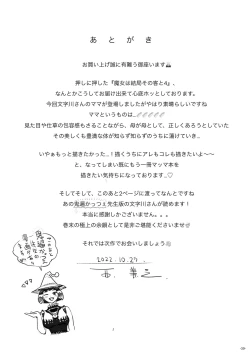 あとがき
お買い上げ誠に有難う御座います
押しに押した『魔女は結局その杏と4』、
なんとかこうしてお届け出来て心底ホッとしております。
今回文字川さんのママが登場しましたがやはり素晴らしいですね
ママというものは…
見た目や仕草の包容感もさることながら、母が母として、正しくあろうとしていた
その美しくも豊満な体が知らず知らずのうちに蕩けていき…
いやぁもっと描きたかった…!描くうちにアレもコレも描きたいよ〜〜
と、なってしまい既にもう一冊マッマ本を
描きたい気持ちになっております…♡
そしてそして、このあと2ページに渡ってなんとですね
あの鬼遍かっつぇ先生版の文字川さんが読めます!
本当に感謝しかございません。。。
巻末の極上の余韻として是非ご堪能くださいませ
それでは次作でお会いしましょう
2022.10.27.